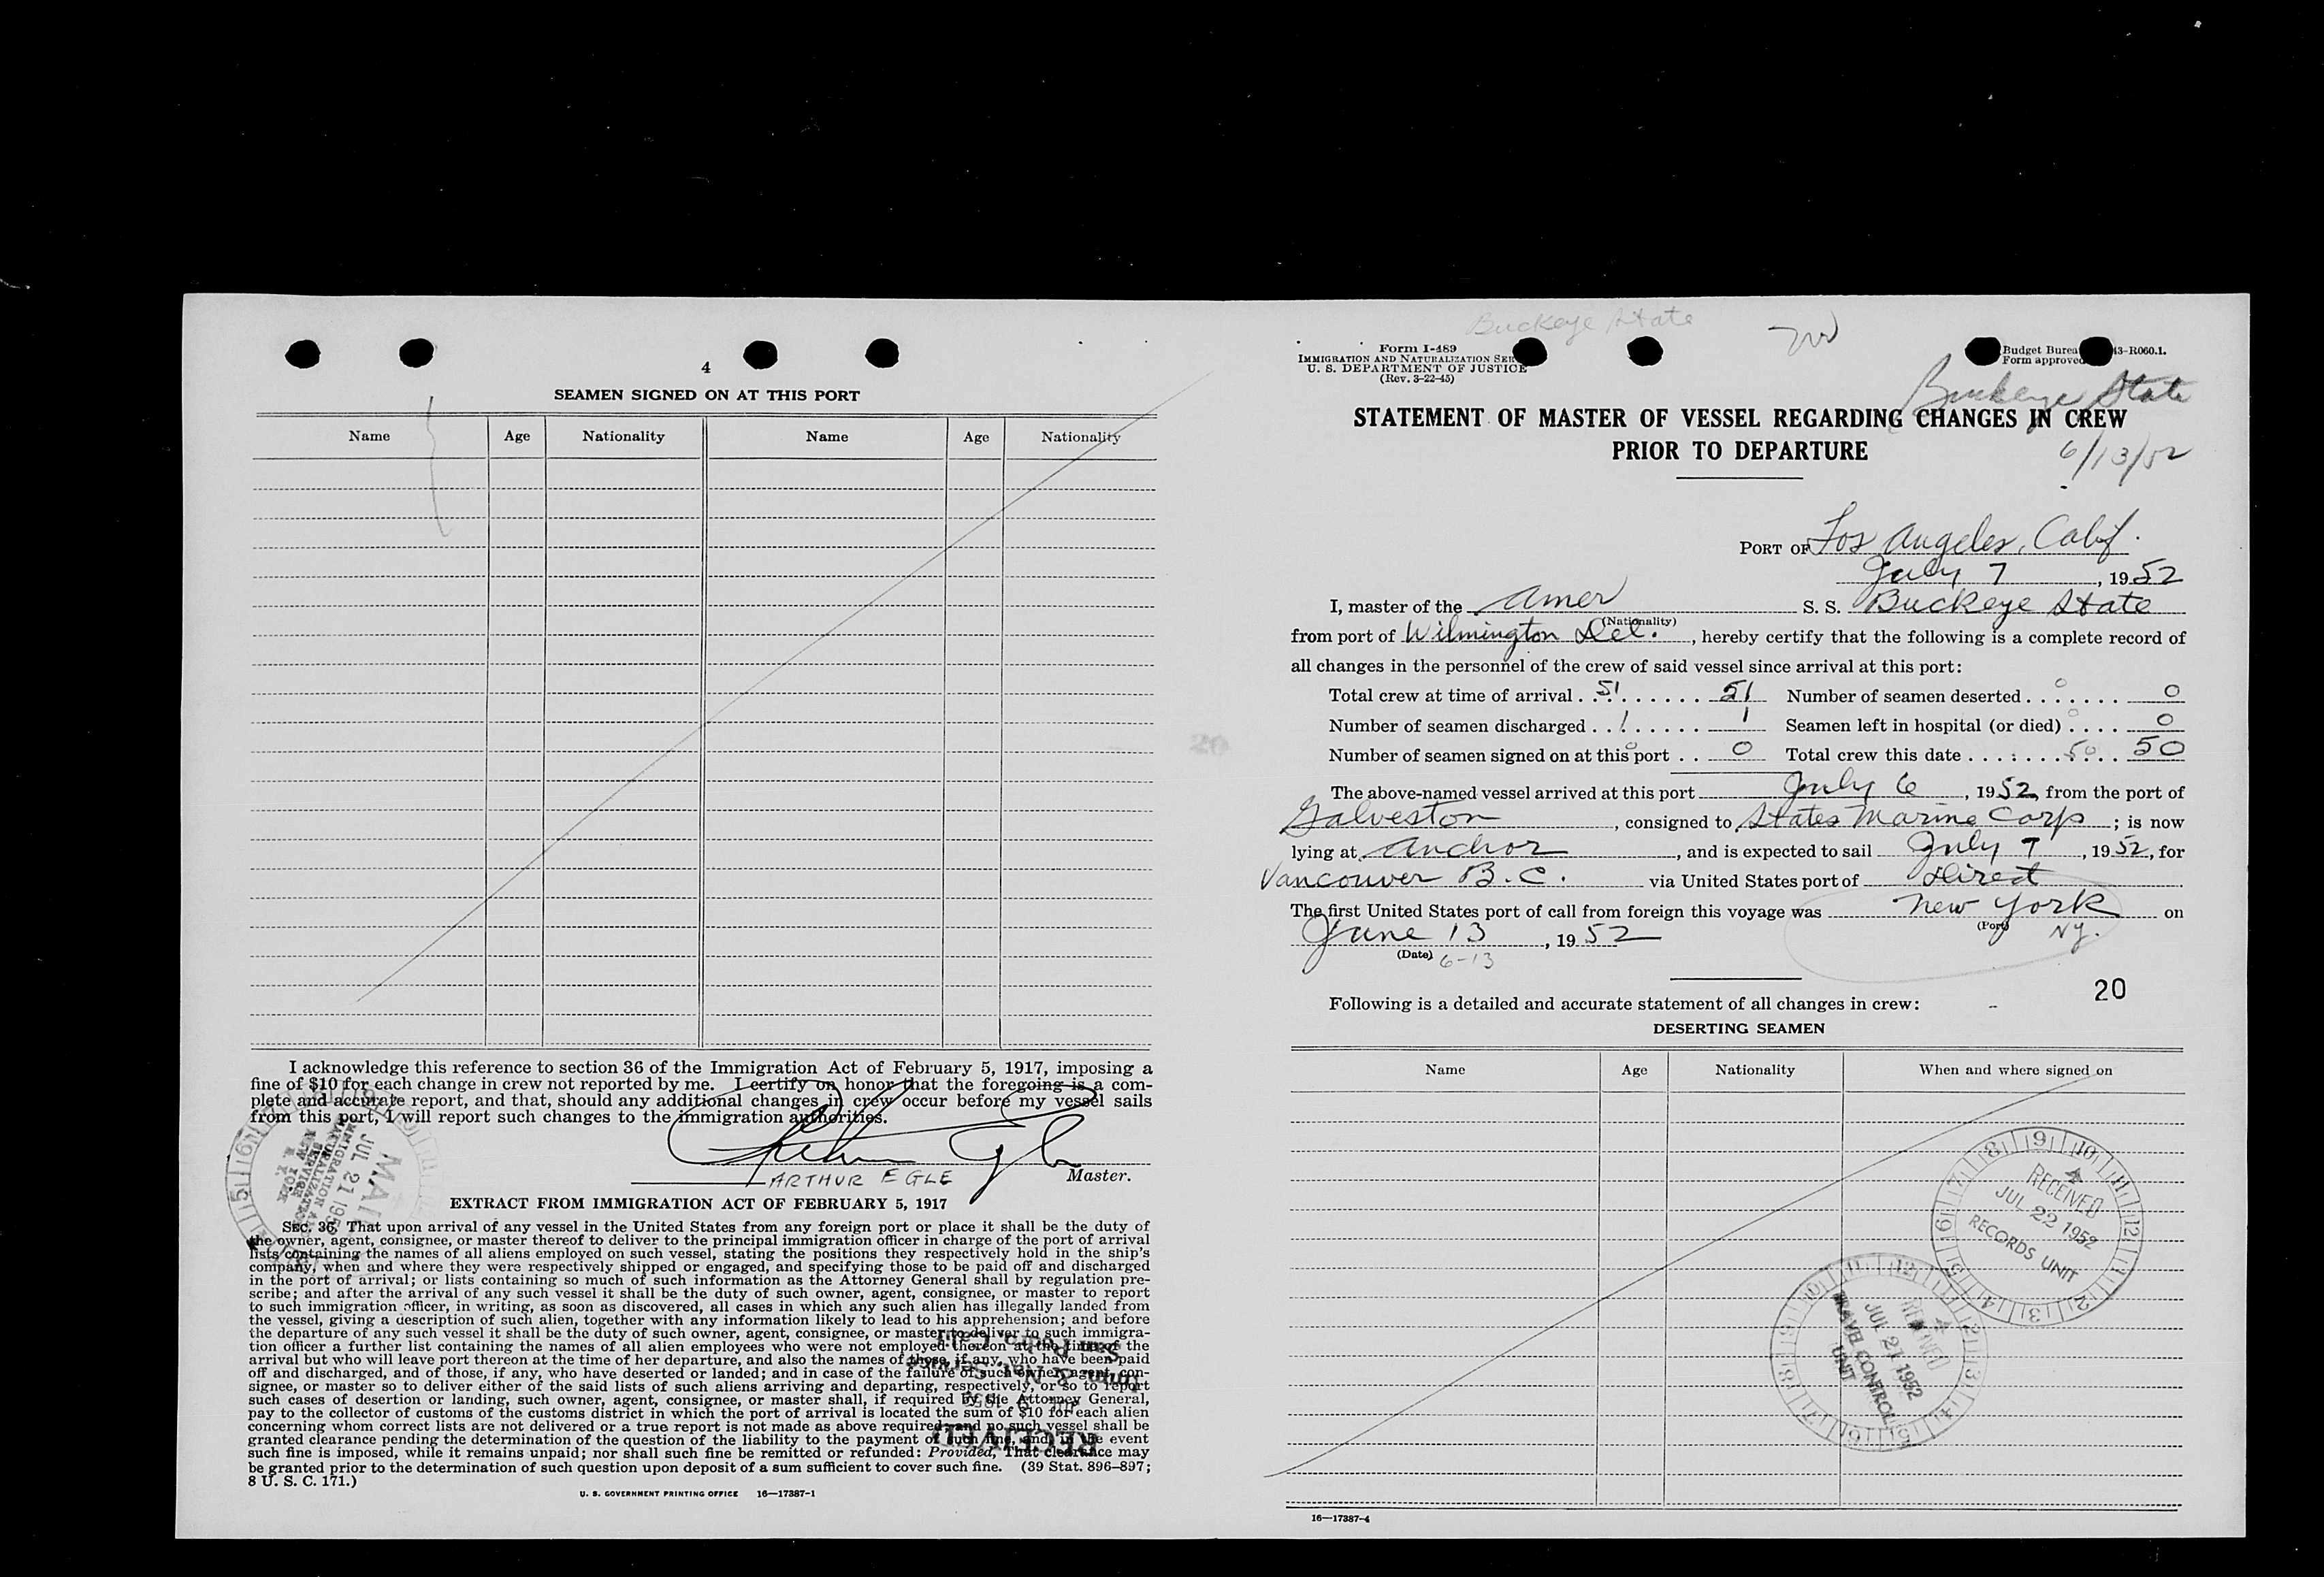 4
SEAMEN SIGNED ON AT THIS PORT
Name Age Nationality Name Age Nationality
I acknowledge this reference to section 36 of the Immigration Act of February 5, 1917, imposing a
fine of $10 for each change in crew not reported by me. I certify on honor that the foregoing is a com-
plete and accurate report, and that, should any additional changes in crew occur before my vessel sails
from this port, I will report such changes to the immigration authorities.
Arthur Egle
ARTHUR EGLE Master.
EXTRACT FROM IMMIGRATION ACT OF FEBRUARY 5, 1917
SEC. 36. That upon arrival of any vessel in the United States from any foreign port or place it shall be the duty of
the owner, agent, consignee, or master thereof to deliver to the principal immigration officer in charge of the port of arrival
lists containing the names of all aliens employed on such vessel, stating the positions they respectively hold in the ship's
company, when and where they were respectively shipped or engaged, and specifying those to be paid off and discharged
in the port of arrival; or lists containing so much of such information as the Attorney General shall by regulation pre-
scribe; and after the arrival of any such vessel it shall be the duty of such owner, agent, consignee, or master to report
to such immigration officer, in writing, as soon as discovered, all cases in which any such alien has illegally landed from
the vessel, giving a description of such alien, together with any information likely to lead to his apprehension; and before
the departure of any such vessel it shall be the duty of such owner, agent, consignee, or master to deliver to such immigra-
tion officer a further list containing the names of all alien employees who were not employed thereon at the time of the
arrival but who will leave port thereon at the time of her departure, and also the names of those, if any, who have been paid
off and discharged, and of those, if any, who have deserted or landed; and in case of the failure of such owner, agent, con-
signee, or master so to deliver either of the said lists of such aliens arriving and departing, respectively, or so to report
such cases of desertion or landing, such owner, agent, consignee, or master shall, if required by the Attorney General,
pay to the collector of customs of the customs district in which the port of arrival is located the sum of $10 for each alien
concerning whom correct lists are not delivered or a true report is not made as above required; and no such vessel shall be
granted clearance pending the determination of the question of the liability to the payment of such fine, and, in the event
such fine is imposed, while it remains unpaid; nor shall such fine be remitted or refunded: Provided, That clearance may
be granted prior to the determination of such question upon deposit of a sum sufficient to cover such fine. (39 Stat. 896–897;
8 U. S. C. 171.)
U. S. GOVERNMENT PRINTING OFFICE 16—17387-1
MAIL
JUL 21 1952
IMMIGRATION AND
NATURALIZATION
SERVICE
NEW YORK
N. Y.
RECEIVED
Imm & Nat. Service
San Pedro, Calif.
Buckeye State
Form I-489
IMMIGRATION AND NATURALIZATION SER
U. S. DEPARTMENT OF JUSTICE
(Rev. 3-22-45)
Budget Burea 43-R060.1.
Form approved
Buckeye State
STATEMENT OF MASTER OF VESSEL REGARDING CHANGES IN CREW
PRIOR TO DEPARTURE
6/13/52
PORT OF Los Angeles, Calif.
July 7, 1952
I, master of the Amer S. S. Buckeye State
(Nationality)
from port of Wilmington Del., hereby certify that the following is a complete record of
all changes in the personnel of the crew of said vessel since arrival at this port:
Total crew at time of arrival 51 51 Number of seamen deserted 0 0
Number of seamen discharged 1 1 Seamen left in hospital (or died) 0 0
Number of seamen signed on at this port 0 0 Total crew this date 50 50
The above-named vessel arrived at this port July 6, 1952, from the port of
Galveston, consigned to States Marine Corp; is now
lying at Anchor, and is expected to sail July 7, 1952, for
Vancouver B.C. via United States port of Direct
The first United States port of call from foreign this voyage was New York on
(Port) NY.
June 13, 1952
(Date) 6-13
20
Following is a detailed and accurate statement of all changes in crew:
DESERTING SEAMEN
Name Age Nationality When and where signed on
RECEIVED
JUL 22 1952
RECORDS UNIT
RECEIVED
JUL 21 1952
TRAVEL CONTROL
UNIT
16—17387-4